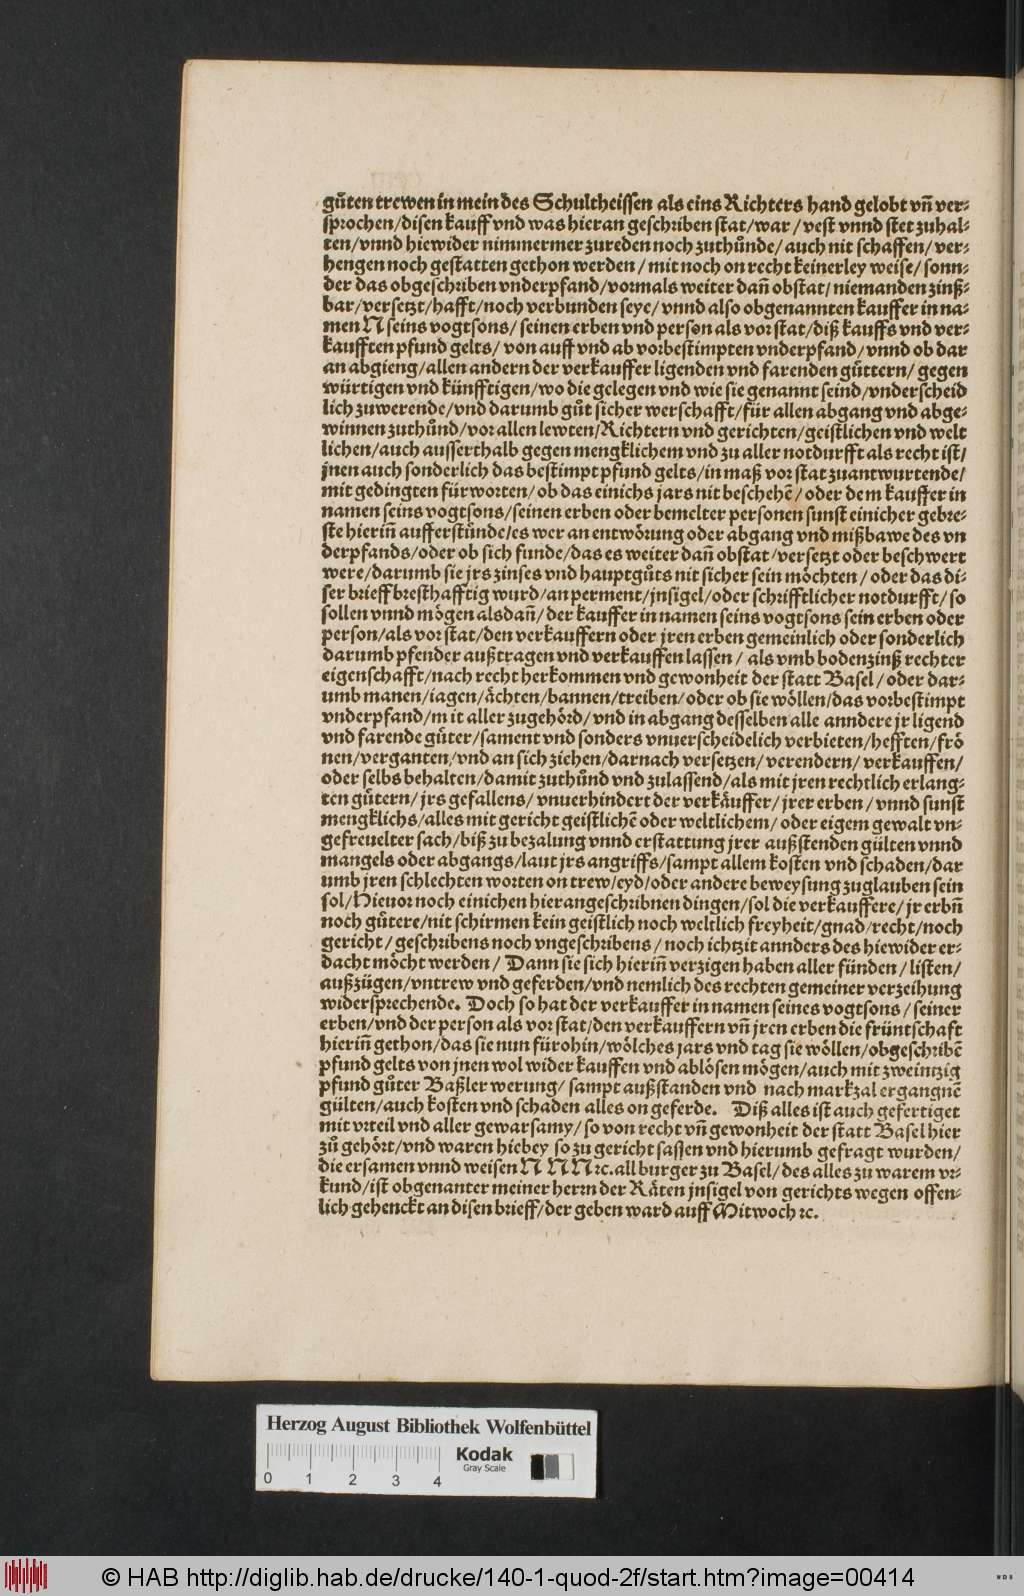 gůten trewen in mein des Schultheissen als eins Richters hand gelobt vn̄ ver⸗
sprochen/disen kauff vnd was hieran geschriben stat/war/vest vnnd stet zuhal⸗
ten/vnnd hiewider nimmermer zureden noch zuthůnde/auch nit schaffen/ver⸗
hengen noch gestatten gethon werden/mit noch on recht keinerley weise/sonn⸗
der das obgeschriben vnderpfand/vormals weiter dan̄ obstat/niemanden zinß⸗
bar/versetzt/hafft/noch verbunden seye/vnnd also obgenannten kauffer in na⸗
men N seins vogtsons/seinen erben vnd person als vor stat/diß kauffs vnd ver⸗
kaufften pfund gelts/von auff vnd ab vorbestimpten vnderpfand/vnnd ob dar
an abgieng/allen andern der verkauffer ligenden vnd farenden gůttern/gegen
würtigen vnd künfftigen/wo die gelegen vnd wie sie genannt seind/vnderscheid
lich zuwerende/vnd darumb gůt sicher werschafft/für allen abgang vnd abge⸗
winnen zuthůnd/vor allen lewten/Richtern vnd gerichten/geistlichen vnd welt
lichen/auch ausserthalb gegen mengklichem vnd zu aller notdurfft als recht ist/
jnen auch sonderlich das bestimpt pfund gelts/in maß vor stat zuantwurtende/
mit gedingten fürworten/ob das einichs jars nit beschehē/oder dem kauffer in
namen seins vogtsons/seinen erben oder bemelter personen sunst einicher gebre⸗
ste hierin̄ aufferstünde/es wer an entwörung oder abgang vnd mißbawe des vn
derpfands/oder ob sich funde/das es weiter dan̄ obstat/versetzt oder beschwert
were/darumb sie jrs zinses vnd hauptgůts nit sicher sein möchten/oder das di⸗
ser brieff bresthafftig wurd/an perment/jnsigel/oder schrifftlicher notdurfft/so
sollen vnnd mögen alsdan̄/der kauffer in namen seins vogtsons sein erben oder
person/als vor stat/den verkauffern oder jren erben gemeinlich oder sonderlich
darumb pfender außtragen vnd verkauffen lassen/als vmb bodenzinß rechter
eigenschafft/nach recht herkommen vnd gewonheit der statt Basel/oder dar⸗
umb manen/iagen/ächten/bannen/treiben/oder ob sie wöllen/das vorbestimpt
vnderpfand/mit aller zugehörd/vnd in abgang desselben alle anndere jr ligend
vnd farende gůter/sament vnd sonders vnuerscheidelich verbieten/hefften/frö
nen/verganten/vnd an sich ziehen/darnach versetzen/verendern/verkauffen/
oder selbs behalten/damit zuthůnd vnd zulassend/als mit jren rechtlich erlang⸗
ten gůtern/jrs gefallens/vnuerhindert der verkäuffer/jrer erben/vnnd sunst
mengklichs/alles mit gericht geistlichē oder weltlichem/oder eigem gewalt vn⸗
gefreuelter sach/biß zu bezalung vnnd erstattung jrer außstenden gülten vnnd
mangels oder abgangs/laut jrs angriffs/sampt allem kosten vnd schaden/dar
umb jren schlechten worten on trew/eyd/oder andere beweysung zuglauben sein
sol/Hieuor noch einichen hierangeschribnen dingen/sol die verkauffere/jr erbn̄
noch gůtere/nit schirmen kein geistlich noch weltlich freyheit/gnad/recht/noch
gericht/geschribens noch vngeschribens/noch ichtzit annders des hiewider er⸗
dacht möcht werden/Dann sie sich hierin̄ verzigen haben aller fünden/listen/
außzügen/vntrew vnd geferden/vnd nemlich des rechten gemeiner verzeihung
widersprechende. Doch so hat der verkauffer in namen seines vogtsons/seiner
erben/vnd der person als vor stat/den verkauffern vn̄ jren erben die früntschaft
hierin̄ gethon/das sie nun fürohin/wölches jars vnd tag sie wöllen/obgeschribē
pfund gelts von jnen wol wider kauffen vnd ablösen mögen/auch mit zweintzig
pfund gůter Baßler werung/sampt außstanden vnd nach markzal ergangnē
gülten/auch kosten vnd schaden alles on geferde. Diß alles ist auch gefertiget
mit vrteil vnd aller gewarsamy/so von recht vn̄ gewonheit der statt Basel hier
zů gehört/vnd waren hiebey so zu gericht sassen vnd hierumb gefragt wurden/
die ersamen vnnd weisen N N N ꝛc. all burger zu Basel/des alles zu warem vr⸗
kund/ist obgenanter meiner herrn der Räten jnsigel von gerichts wegen offen⸗
lich gehenckt an disen brieff/der geben ward auff Mitwoch ꝛc.
Herzog August Bibliothek Wolfenbüttel
Kodak
Gray Scale
0 1 2 3 4
© HAB http://diglib.hab.de/drucke/140-1-quod-2f/start.htm?image=00414